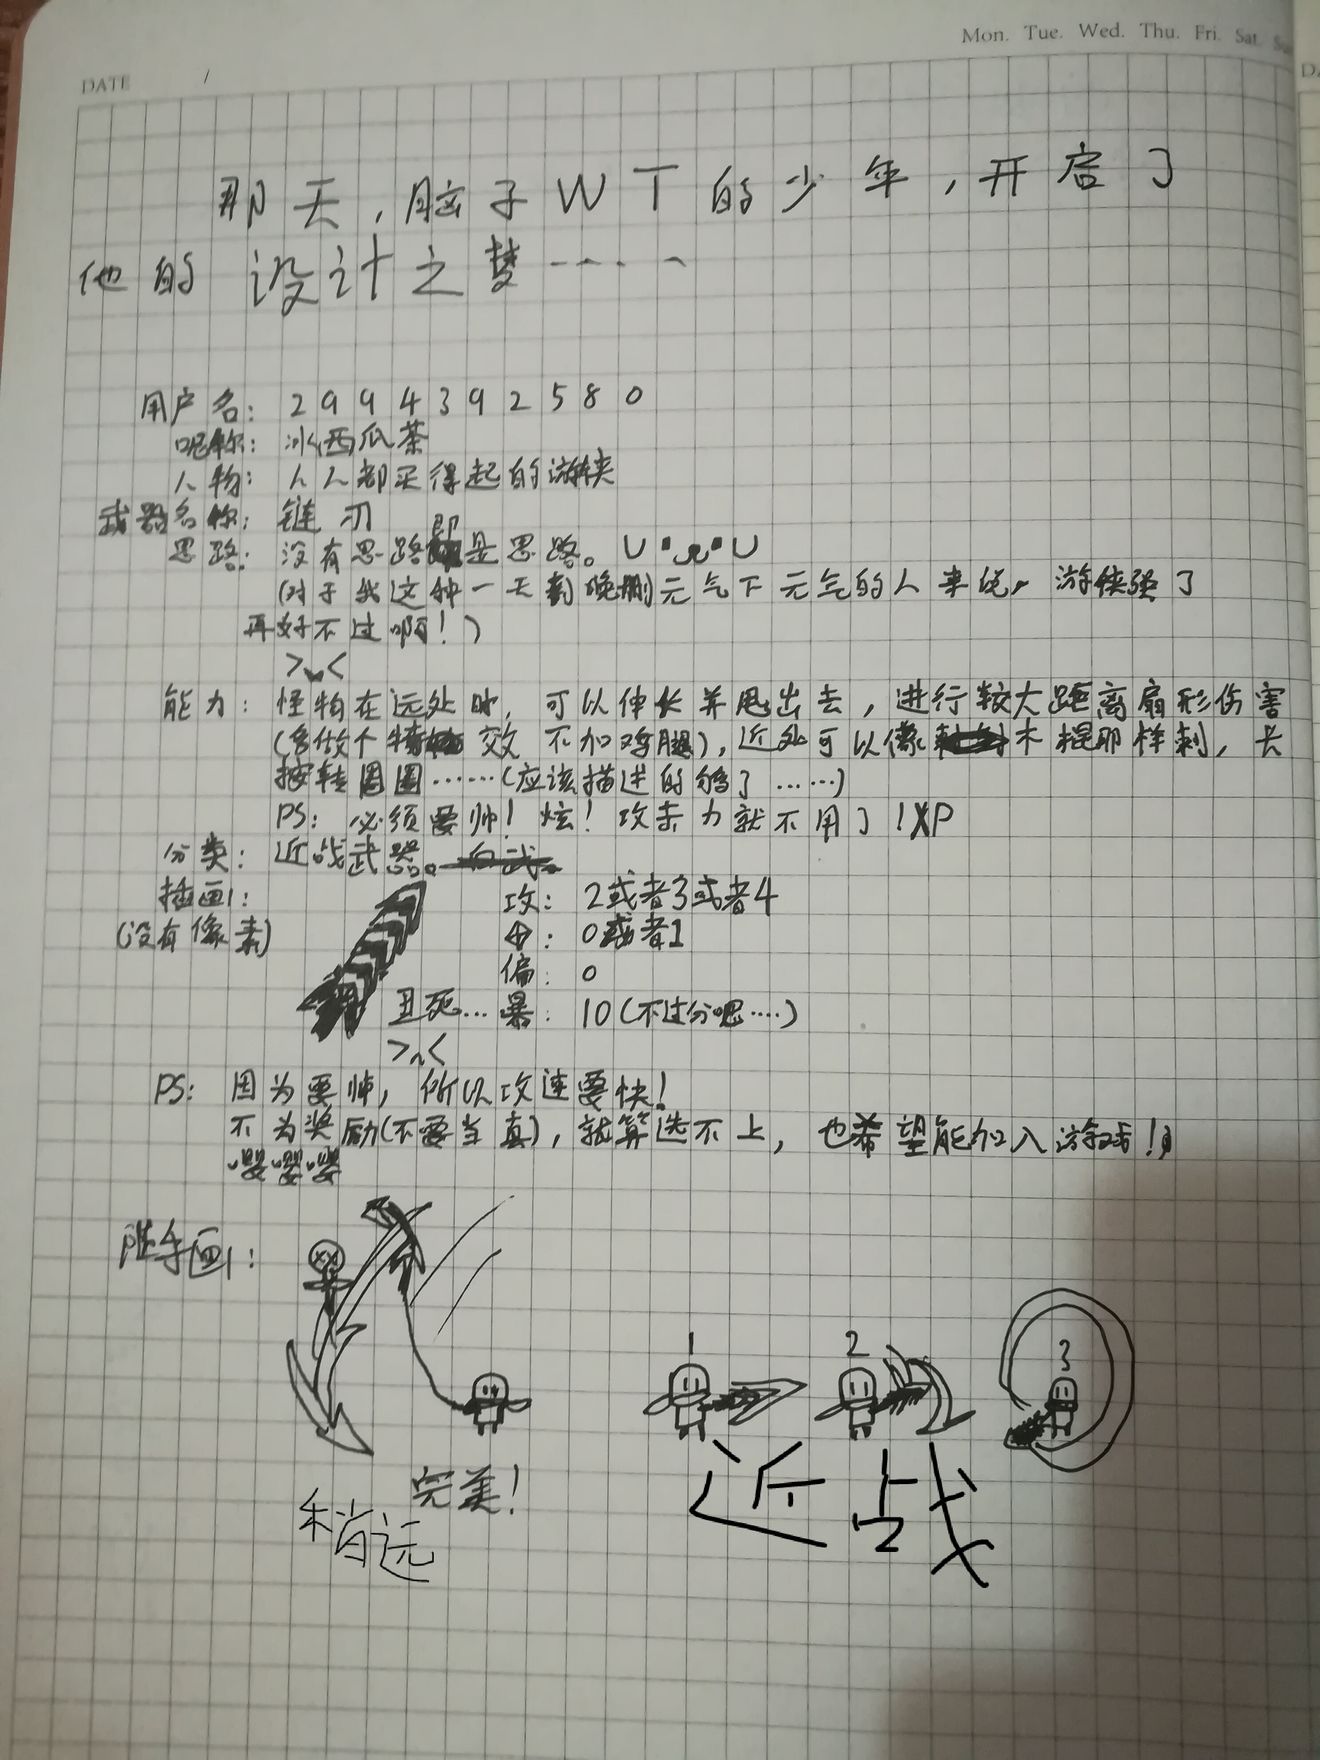 Mon. Tue. Wed. Thu. Fri. Sat.
DATE /
那天，脑子WT的少年，开启了
他的设计之梦·····
用户名：2994392580
昵称：冰西瓜茶
人物：人人都买得起的游侠
武器名称：链刃
思路：没有思路即是思路。U·ᴥ·U
(对于我这种一天到晚删元气下元气的人来说，游侠强了
再好不过啊！)
>ᴗ<
能力：怪物在远处时，可以伸长并甩出去，进行较大距离扇形伤害
(多做个特效 不加鸡腿)，近处可以像木棍那样刺，长
按转圈圈……(应该描述的够了……)
PS：必须要帅！炫！攻击力就不用了！XP
分类：近战武器。
插画1：
(没有像素)
攻：2或者3或者4
：0或者1
偏：0
丑死… 暴：10(不过分吧····)
>n<
PS：因为要帅，所以攻速要快！
不为奖励(不要当真)，就算选不上，也希望能加入游戏！
嘤嘤嘤
随手画1：
1 2 3
完美！
稍远
近战